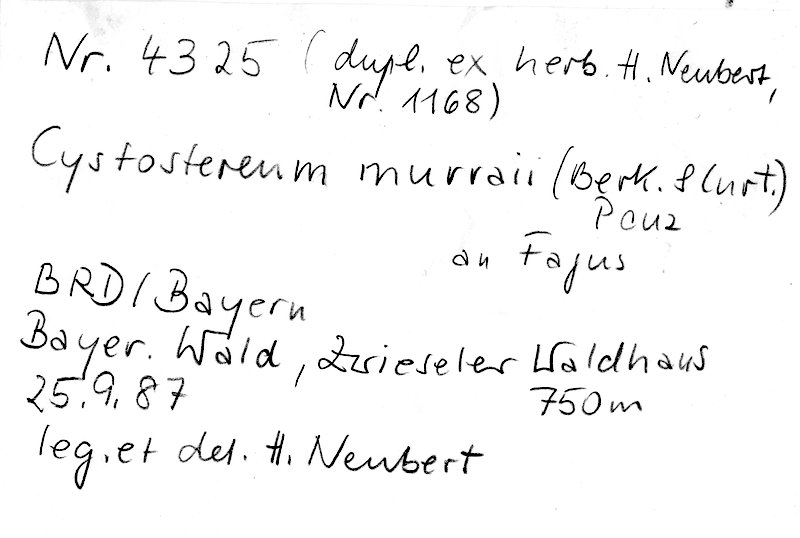 Nr. 4325 (dupl. ex herb. H. Neubert,
Nr. 1168)
Cystostereum murraii (Berk. & Curt.)
Pouz
an Fagus
BRD/Bayern
Bayer. Wald, Zwieseler Waldhaus
25.9.87 750m
leg. et det. H. Neubert